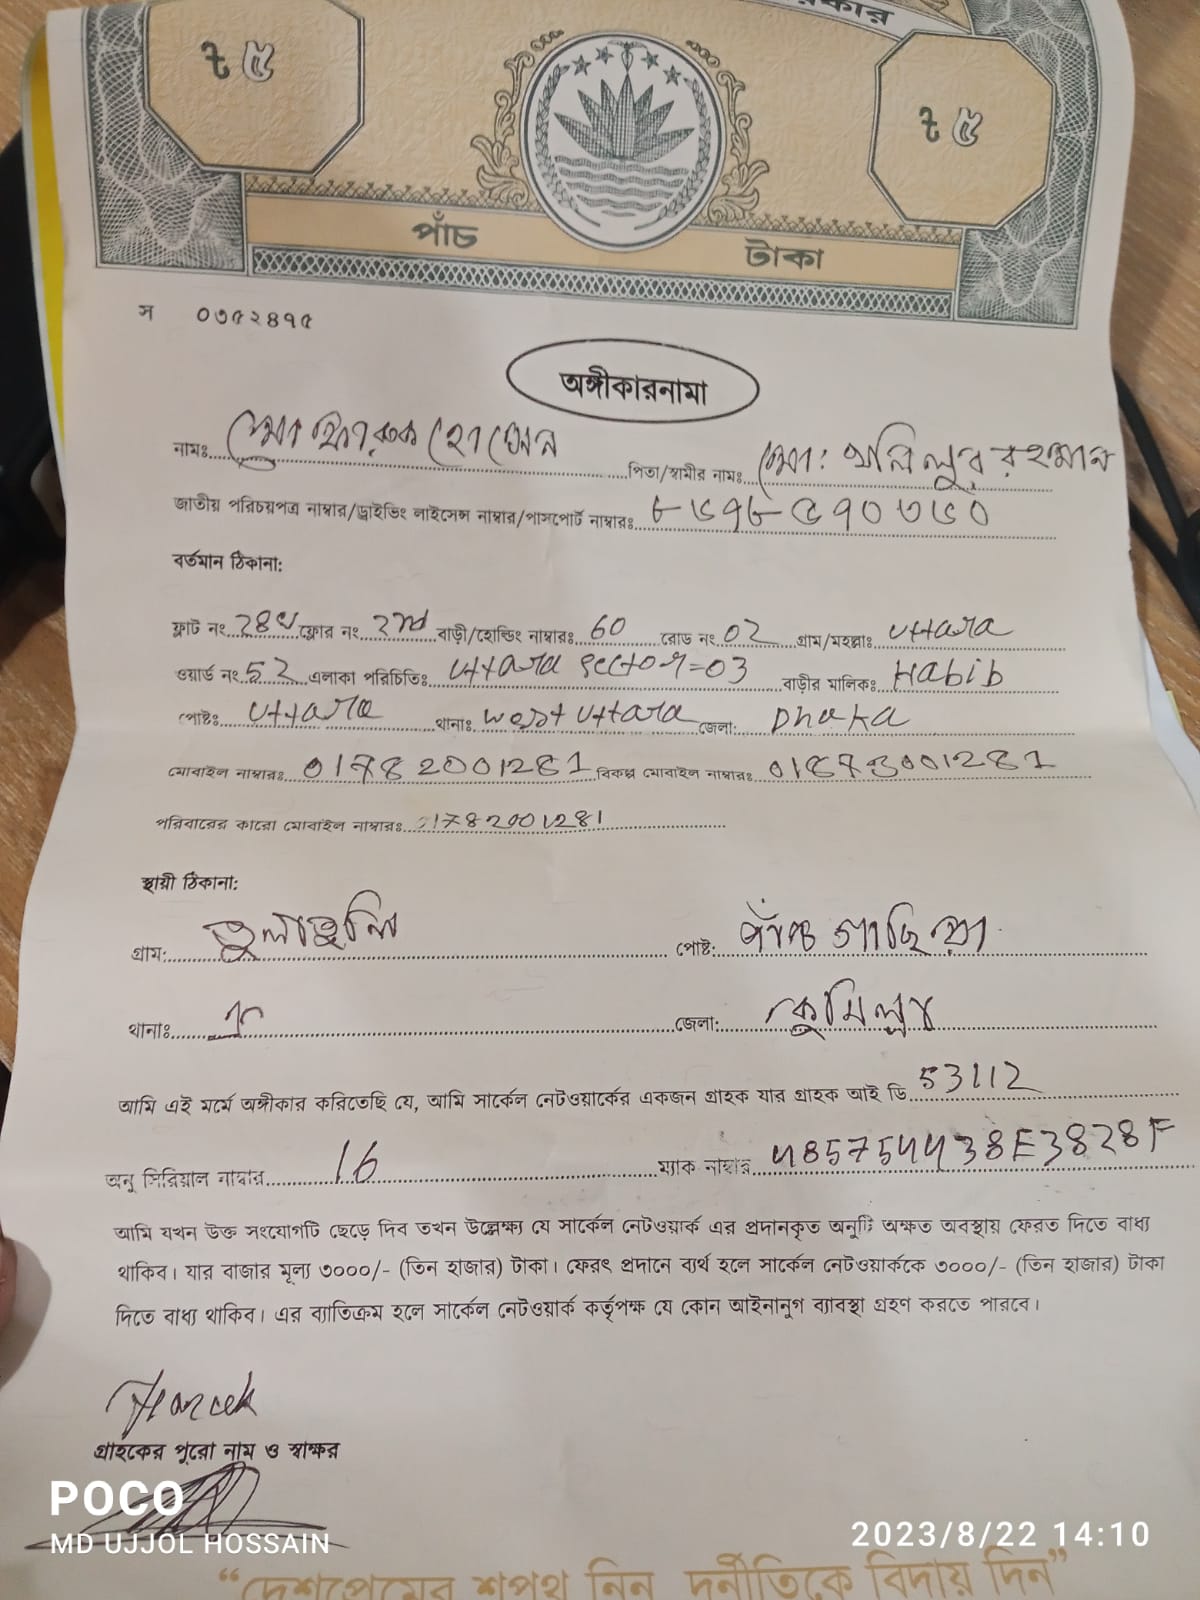 ৳ ৫
৳ ৫
পাঁচ টাকা
স ০৩৫২৪৭৫
অঙ্গীকারনামা
নামঃ মোঃ ফারুক হোসেন পিতা/স্বামীর নামঃ মোঃ খলিলুর রহমান
জাতীয় পরিচয়পত্র নাম্বার/ড্রাইভিং লাইসেন্স নাম্বার/পাসপোর্ট নাম্বারঃ
বর্তমান ঠিকানা:
ফ্লাট নং ফ্লোর নং 2nd বাড়ী/হোল্ডিং নাম্বারঃ 60 রোড নং 02 গ্রাম/মহল্লাঃ Uttara
ওয়ার্ড নং 52 এলাকা পরিচিতিঃ Uttara Sector=03 বাড়ীর মালিকঃ Habib
পোষ্টঃ Uttara থানাঃ West Uttara জেলা: Dhaka
মোবাইল নাম্বারঃ 01782001281 বিকল্প মোবাইল নাম্বারঃ 01873001281
পরিবারের কারো মোবাইল নাম্বারঃ 01782001281
স্থায়ী ঠিকানা:
গ্রাম: পোষ্ট:
থানাঃ জেলা: কুমিল্লা
আমি এই মর্মে অঙ্গীকার করিতেছি যে, আমি সার্কেল নেটওয়ার্কের একজন গ্রাহক যার গ্রাহক আই ডি 53112
অনু সিরিয়াল নাম্বার 16 ম্যাক নাম্বার 485754438E3828F
আমি যখন উক্ত সংযোগটি ছেড়ে দিব তখন উল্লেক্ষ্য যে সার্কেল নেটওয়ার্ক এর প্রদানকৃত অনুটি অক্ষত অবস্থায় ফেরত দিতে বাধ্য
থাকিব। যার বাজার মূল্য ৩০০০/- (তিন হাজার) টাকা। ফেরৎ প্রদানে ব্যর্থ হলে সার্কেল নেটওয়ার্ককে ৩০০০/- (তিন হাজার) টাকা
দিতে বাধ্য থাকিব। এর ব্যাতিক্রম হলে সার্কেল নেটওয়ার্ক কর্তৃপক্ষ যে কোন আইনানুগ ব্যাবস্থা গ্রহণ করতে পারবে।
গ্রাহকের পুরো নাম ও স্বাক্ষর
POCO
MD UJJOL HOSSAIN
2023/8/22 14:10
“দেশপ্রেমের শপথ নিন দুর্নীতিকে বিদায় দিন”